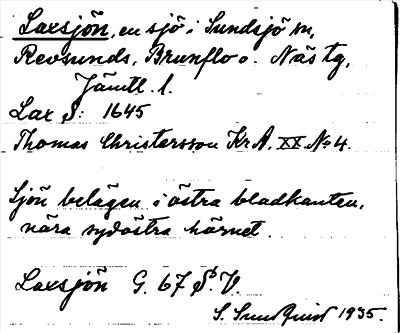 Laxsjön, en sjö i Sundsjö sn,
Revsunds, Brunflo o. Näs tg,
Jämtl. l.
Lax S: 1645
Thomas Christersson Kr A. XX No 4.
Sjön belägen i östra bladkanten,
nära sydöstra hörnet.
Laxsjön G. 67 S.b V.
S. Sundqvist 1935.